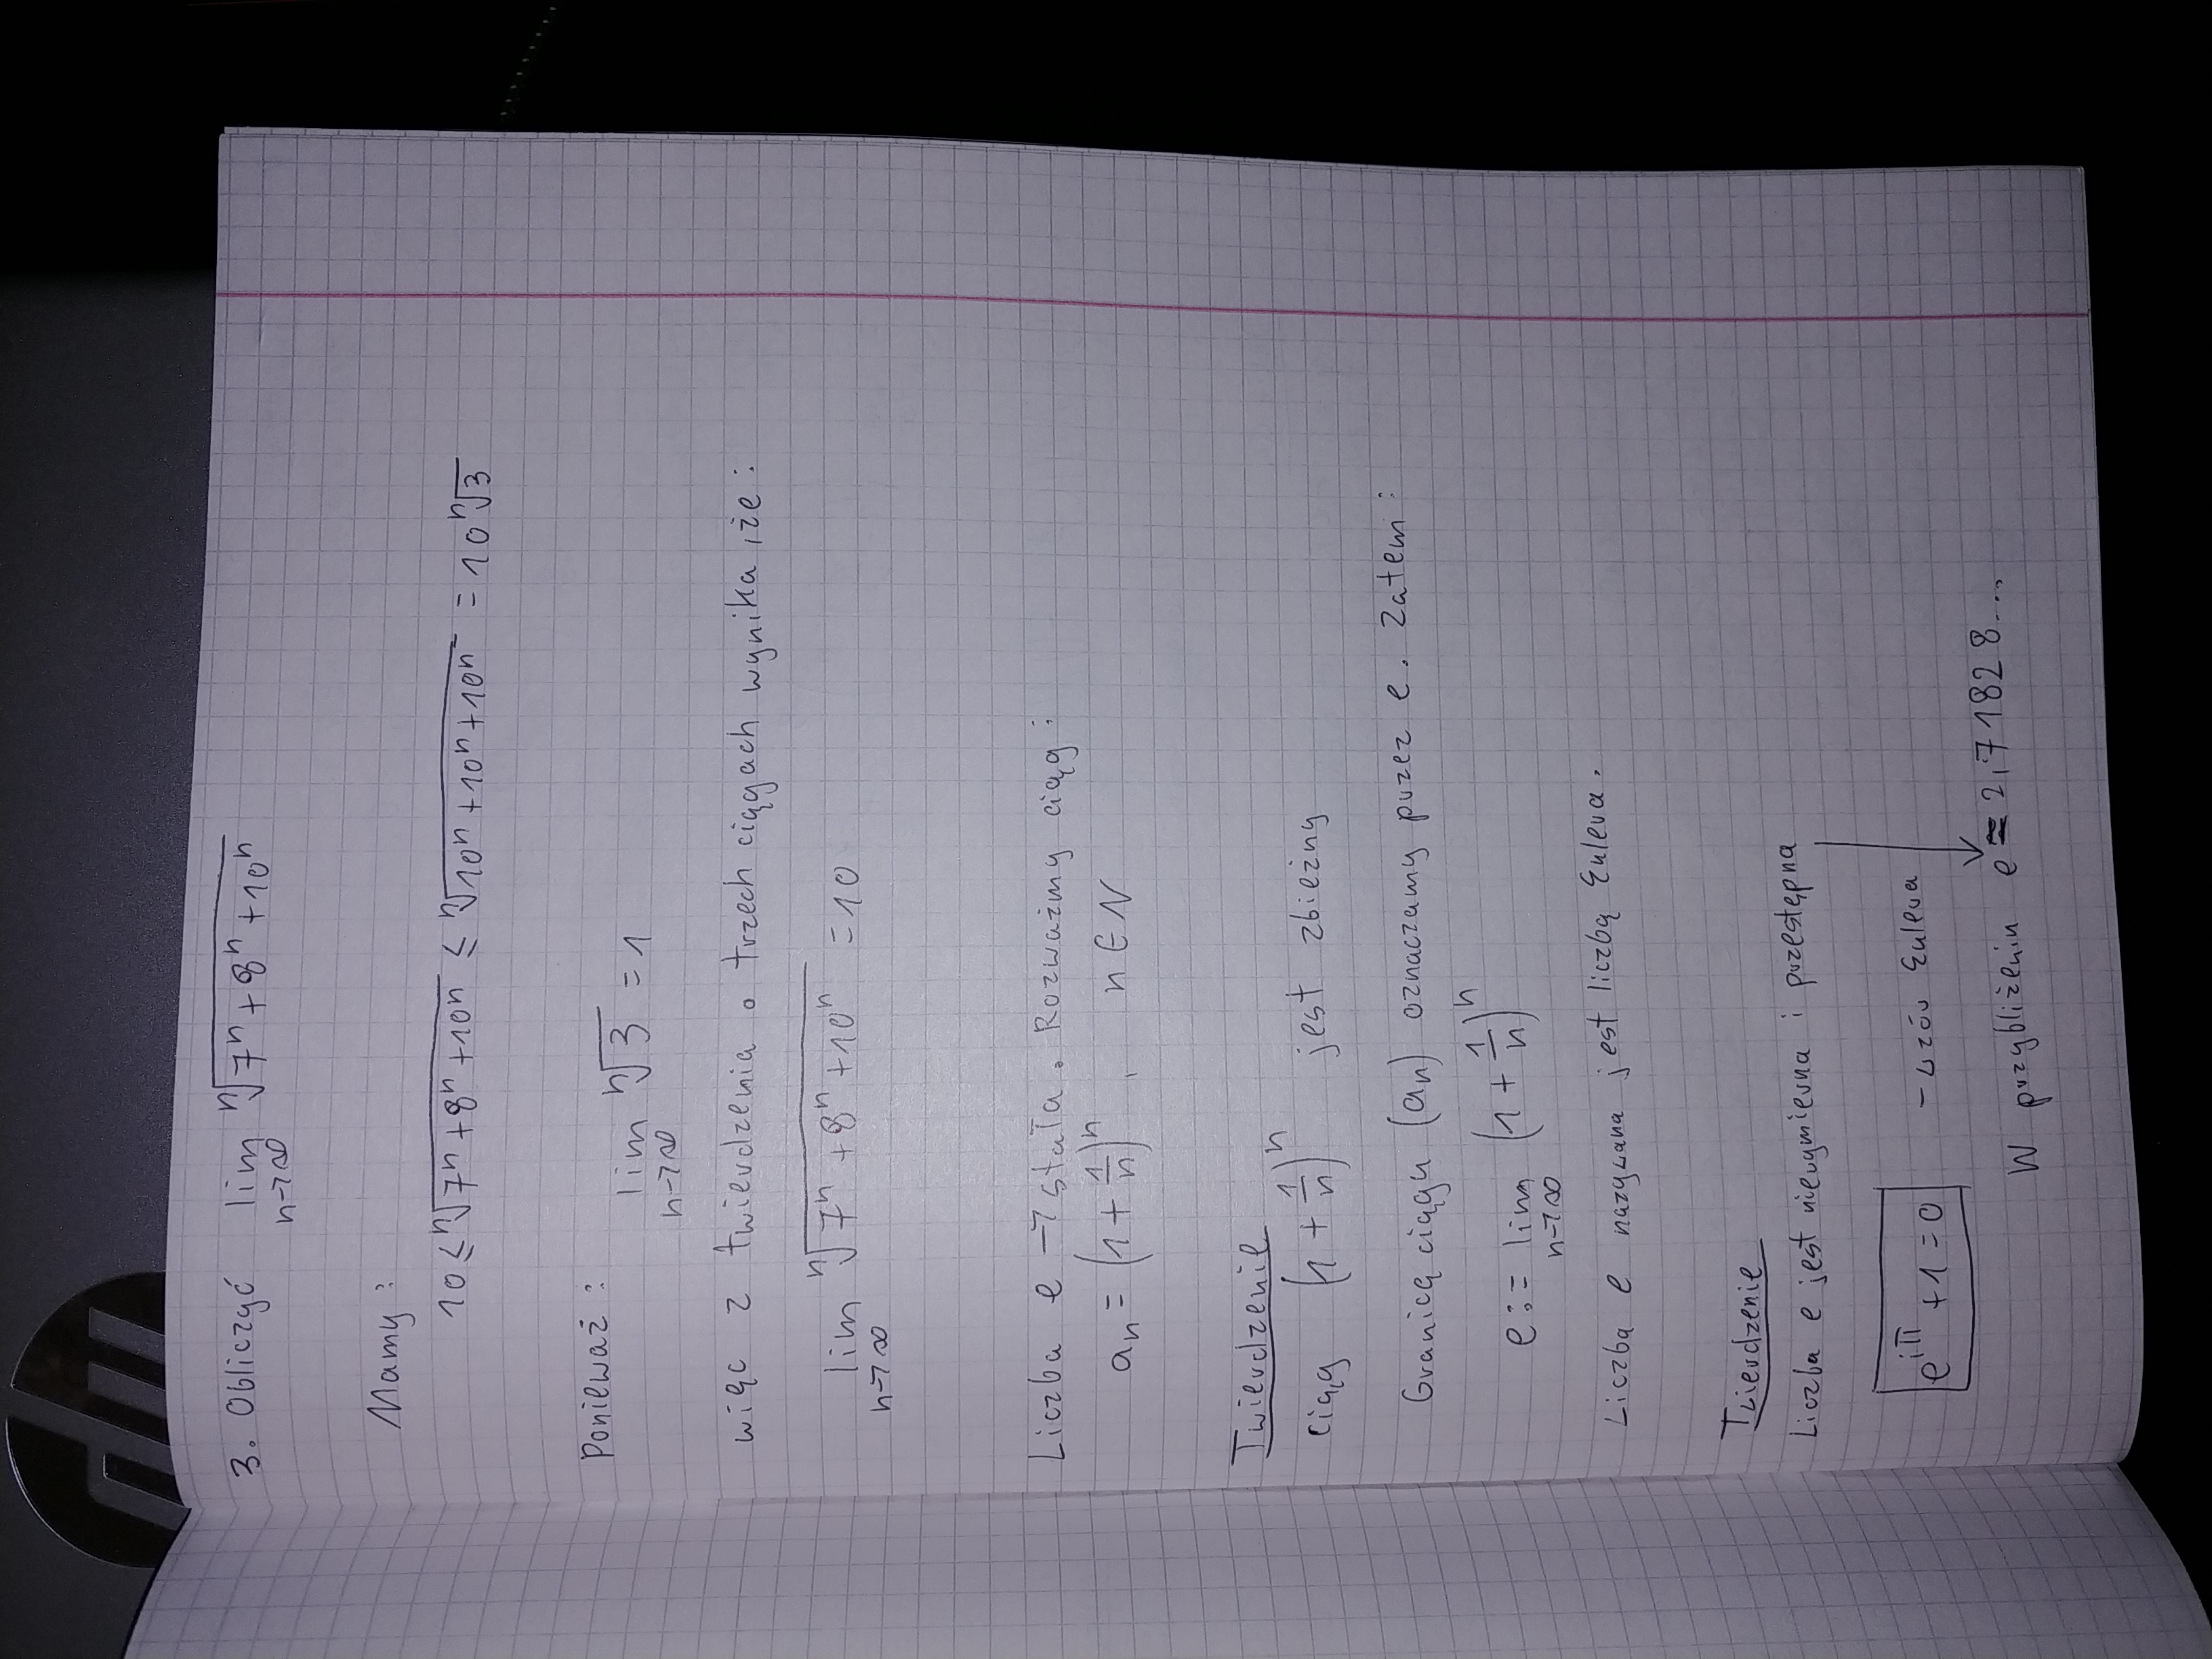 hp
3. Obliczyć lim n→∞ ⁿ√(7ⁿ + 8ⁿ + 10ⁿ)
Mamy:
10 ≤ ⁿ√(7ⁿ + 8ⁿ + 10ⁿ) ≤ ⁿ√(10ⁿ + 10ⁿ + 10ⁿ) = 10 ⁿ√3
Ponieważ:
lim n→∞ ⁿ√3 = 1
więc z twierdzenia o trzech ciągach wynika, że:
lim n→∞ ⁿ√(7ⁿ + 8ⁿ + 10ⁿ) = 10
Liczba e → stała. Rozważmy ciąg:
aₙ = (1 + 1/n)ⁿ , n ∈ N
Twierdzenie
ciąg (1 + 1/n)ⁿ jest zbieżny
Granicę ciągu (aₙ) oznaczamy przez e. Zatem:
e := lim n→∞ (1 + 1/n)ⁿ
Liczba e nazywana jest liczbą Eulera.
Twierdzenie
Liczba e jest niewymierna i przestępna
e^(iπ) + 1 = 0 - wzór Eulera
W przybliżeniu e ≈ 2,71828...